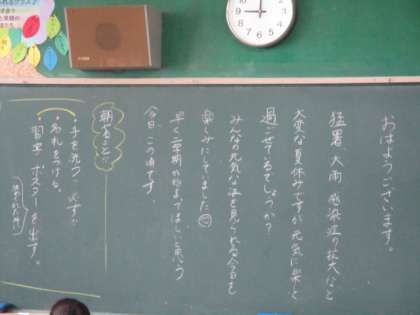 おはようございます。
猛暑、大雨、感染症の拡大など
大変な夏休みですが、元気に楽しく
過ごせているでしょうか？
みんなの元気な姿を見られる今日を
楽しみにしていました
早く二学期が始まってほしいと思う
今日この頃です。
朝すること!!
・手を洗う
・名札をつける。
・習字、ポスターを出す。